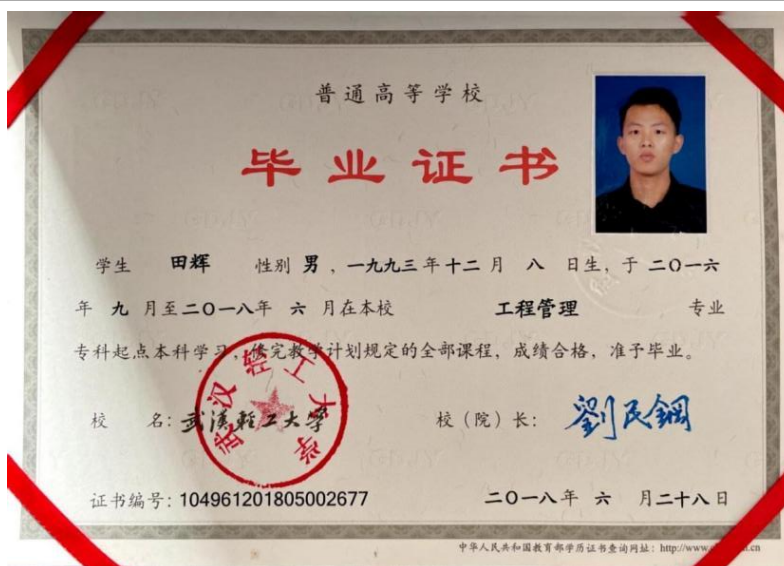 普通高等学校
毕业证书
学生 田辉 性别 男 , 一九九三 年 十二 月 八 日生, 于 二〇一六
年 九 月至 二〇一八年 六 月在本校 工程管理 专业
专科起点本科学习, 修完教学计划规定的全部课程, 成绩合格, 准予毕业。
校 名: 武漢輕工大学 校(院)长: 劉民鋼
武汉轻工大学
证书编号: 104961201805002677 二〇一八年 六 月二十八日
中华人民共和国教育部学历证书查询网址: http://www.